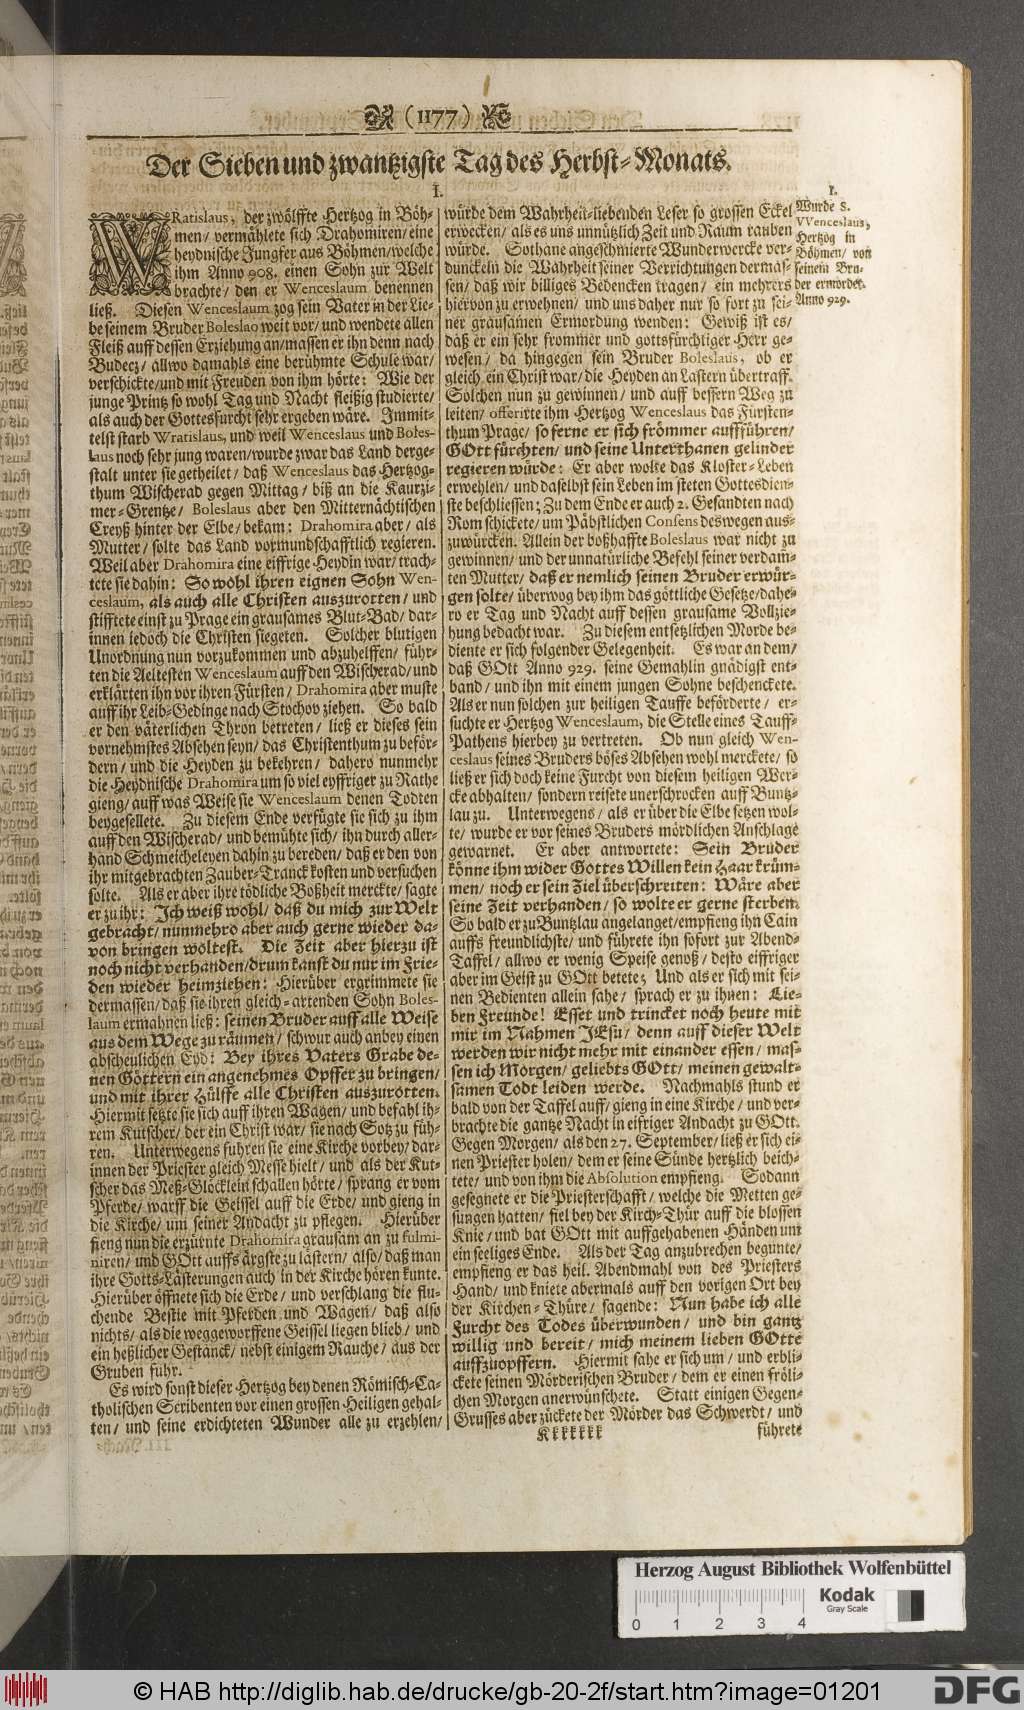 (1177)
Der Sieben und zwantzigste Tag des Herbst-Monats.
I.
WRatislaus, der zwölffte Hertzog in Böh-
men/ vermählete sich Drahomiren/ eine
heydnische Jungfer aus Böhmen/ welche
ihm Anno 908. einen Sohn zur Welt
brachte/ den er Wenceslaum benennen
ließ. Diesen Wenceslaum zog sein Vater in der Lie-
be seinem Bruder Boleslao weit vor/ und wendete allen
Fleiß auff dessen Erziehung an/ massen er ihn denn nach
Budecz/ allwo damahls eine berühmte Schule war/
verschickte/ und mit Freuden von ihm hörte: Wie der
junge Printz so wohl Tag und Nacht fleißig studierte/
als auch der Gottesfurcht sehr ergeben wäre. Immit-
telst starb Wratislaus, und weil Wenceslaus und Boles-
laus noch sehr jung waren/ wurde zwar das Land derge-
stalt unter sie getheilet/ daß Wenceslaus das Hertzog-
thum Wischerad gegen Mittag/ biß an die Kaurzi-
mer-Grentze/ Boleslaus aber den Mitternächtischen
Creyß hinter der Elbe/ bekam: Drahomira aber/ als
Mutter/ solte das Land vormundschafftlich regieren.
Weil aber Drahomira eine eiffrige Heydin war/ trach-
tete sie dahin: So wohl ihren eignen Sohn Wen-
ceslaum, als auch alle Christen auszurotten/ und
stifftete einst zu Prage ein grausames Blut-Bad/ dar-
innen iedoch die Christen siegeten. Solcher blutigen
Unordnung nun vorzukommen und abzuhelffen/ führ-
ten die Aeltesten Wenceslaum auff den Wischerad/ und
erklärten ihn vor ihren Fürsten/ Drahomira aber muste
auff ihr Leib-Gedinge nach Stochov ziehen. So bald
er den väterlichen Thron betreten/ ließ er dieses sein
vornehmstes Absehen seyn/ das Christenthum zu beför-
dern/ und die Heyden zu bekehren/ dahero nunmehr
die Heydnische Drahomira um so viel eyffriger zu Rathe
gieng/ auff was Weise sie Wenceslaum denen Todten
beygesellete. Zu diesem Ende verfügte sie sich zu ihm
auff den Wischerad/ und bemühte sich/ ihn durch aller-
hand Schmeicheleyen dahin zu bereden/ daß er den von
ihr mitgebrachten Zauber-Tranck kosten und versuchen
solte. Als er aber ihre tödliche Boßheit merckte/ sagte
er zu ihr: Ich weiß wohl/ daß du mich zur Welt
gebracht/ nunmehro aber auch gerne wieder da-
von bringen woltest. Die Zeit aber hierzu ist
noch nicht verhanden/ drum kanst du nur im Frie-
den wieder heimziehen: Hierüber ergrimmete sie
dermassen/ daß sie ihren gleich-artenden Sohn Boles-
laum ermahnen ließ: seinen Bruder auff alle Weise
aus dem Wege zu räumen/ schwur auch anbey einen
abscheulichen Eyd: Bey ihres Vaters Grabe de-
nen Göttern ein angenehmes Opffer zu bringen/
und mit ihrer Hülffe alle Christen auszurotten.
Hiermit setzte sie sich auff ihren Wagen/ und befahl ih-
rem Kutscher/ der ein Christ war/ sie nach Sotz zu füh-
ren. Unterwegens fuhren sie eine Kirche vorbey/ dar-
innen der Priester gleich Messe hielt/ und als der Kut-
scher das Meß-Glöcklein schallen hörte/ sprang er vom
Pferde/ warff die Geissel auff die Erde/ und gieng in
die Kirche/ um seiner Andacht zu pflegen. Hierüber
fieng nun die erzürnte Drahomira grausam an zu fulmi-
niren/ und GOtt auffs ärgste zu lästern/ also/ daß man
ihre Gotts-Lästerungen auch in der Kirche hören kunte.
Hierüber öffnete sich die Erde/ und verschlang die flu-
chende Bestie mit Pferden und Wagen/ daß also
nichts/ als die weggeworffene Geissel liegen blieb/ und
ein heßlicher Gestanck/ nebst einigem Rauche/ aus der
Gruben fuhr.
Es wird sonst dieser Hertzog bey denen Römisch-Ca-
tholischen Scribenten vor einen grossen Heiligen gehal-
ten/ und seine erdichteten Wunder alle zu erzehlen/
würde dem Wahrheit-liebenden Leser so grossen Eckel
erwecken/ als es uns unnützlich Zeit und Raum rauben
würde. Sothane angeschmierte Wunderwercke ver-
dunckeln die Wahrheit seiner Verrichtungen dermas-
sen/ daß wir billiges Bedencken tragen/ ein mehrers
hiervon zu erwehnen/ und uns daher nur so fort zu sei-
ner grausamen Ermordung wenden: Gewiß ist es/
daß er ein sehr frommer und gottsfürchtiger Herr ge-
wesen/ da hingegen sein Bruder Boleslaus, ob er
gleich ein Christ war/ die Heyden an Lastern übertraff.
Solchen nun zu gewinnen/ und auff bessern Weg zu
leiten/ offerirte ihm Hertzog Wenceslaus das Fürsten-
thum Prage/ so ferne er sich frömmer aufführen/
GOtt fürchten/ und seine Unterthanen gelinder
regieren würde: Er aber wolte das Kloster-Leben
erwehlen/ und daselbst sein Leben im steten Gottesdien-
ste beschliessen; Zu dem Ende er auch 2. Gesandten nach
Rom schickete/ um Päbstlichen Consens deswegen aus-
zuwürcken. Allein der boßhaffte Boleslaus war nicht zu
gewinnen/ und der unnatürliche Befehl seiner verdam-
ten Mutter/ daß er nemlich seinen Bruder erwür-
gen solte/ überwog bey ihm das göttliche Gesetze/ dahe-
ro er Tag und Nacht auff dessen grausame Vollzie-
hung bedacht war. Zu diesem entsetzlichen Morde be-
diente er sich folgender Gelegenheit. Es war an dem/
daß GOtt Anno 929. seine Gemahlin gnädigst ent-
band/ und ihn mit einem jungen Sohne beschenckete.
Als er nun solchen zur heiligen Tauffe beförderte/ er-
suchte er Hertzog Wenceslaum, die Stelle eines Tauff-
Pathens hierbey zu vertreten. Ob nun gleich Wen-
ceslaus seines Bruders böses Absehen wohl merckete/ so
ließ er sich doch keine Furcht von diesem heiligen Wer-
cke abhalten/ sondern reisete unerschrocken auff Buntz-
lau zu. Unterwegens/ als er über die Elbe setzen wol-
te/ wurde er vor seines Bruders mördlichen Anschlage
gewarnet. Er aber antwortete: Sein Bruder
könne ihm wider Gottes Willen kein Haar krüm-
men/ noch er sein Ziel überschreiten: Wäre aber
seine Zeit verhanden/ so wolte er gerne sterben.
So bald er zu Buntzlau angelanget/ empfieng ihn Cain
auffs freundlichste/ und führete ihn sofort zur Abend-
Taffel/ allwo er wenig Speise genoß/ desto eiffriger
aber im Geist zu GOtt betete; Und als er sich mit sei-
nen Bedienten allein sahe/ sprach er zu ihnen: Lie-
ben Freunde! Esset und trincket noch heute mit
mir im Nahmen JEsu/ denn auff dieser Welt
werden wir nicht mehr mit einander essen/ mas-
sen ich Morgen/ geliebts GOtt/ meinen gewalt-
samen Todt leiden werde. Nachmahls stund er
bald von der Taffel auff/ gieng in eine Kirche/ und ver-
brachte die gantze Nacht in eifriger Andacht zu GOtt.
Gegen Morgen/ als den 27. September/ ließ er sich ei-
nen Priester holen/ dem er seine Sünde hertzlich beich-
tete/ und von ihm die Absolution empfieng. Sodann
gesegnete er die Priesterschafft/ welche die Metten ge-
sungen hatten/ fiel bey der Kirch-Thür auff die blossen
Knie/ und bat GOtt mit auffgehabenen Händen um
ein seeliges Ende. Als der Tag anzubrechen begunte/
empfieng er das heil. Abendmahl von des Priesters
Hand/ und kniete abermals auff den vorigen Ort bey
der Kirchen-Thüre/ sagende: Nun habe ich alle
Furcht des Todes überwunden/ und bin gantz
willig und bereit/ mich meinem lieben GOtte
auffzuopffern. Hiermit sahe er sich um/ und erbli-
ckete seinen Mörderischen Bruder/ dem er einen fröli-
chen Morgen anerwünschete. Statt einigen Gegen-
Grusses aber zückete der Mörder das Schwerdt/ und
Kkkkkkk
führete
I.
Wurde S.
VVenceslaus,
Hertzog in
Böhmen/ von
seinem Bru-
der ermordet.
Anno 929.
Herzog August Bibliothek Wolfenbüttel
Kodak
Gray Scale
0 1 2 3 4
© HAB http://diglib.hab.de/drucke/gb-20-2f/start.htm?image=01201
DFG